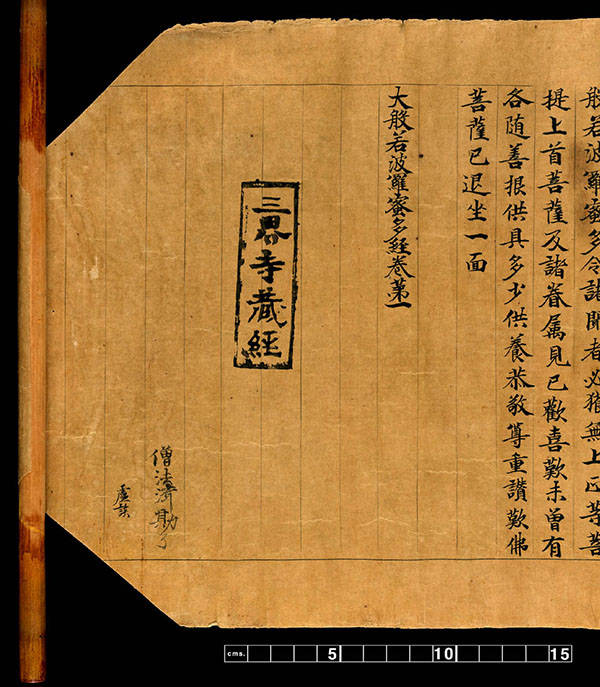 般若波羅蜜多令諸聞者必獲無上正等菩
提上首菩薩及諸眷属見已歡喜歎未曾有
各随善根供具多少供養恭敬尊重讃歎佛
菩薩已退坐一面
大般若波羅蜜多經卷第一
三界寺藏經
僧法濟勘了
cms. 5 10 15